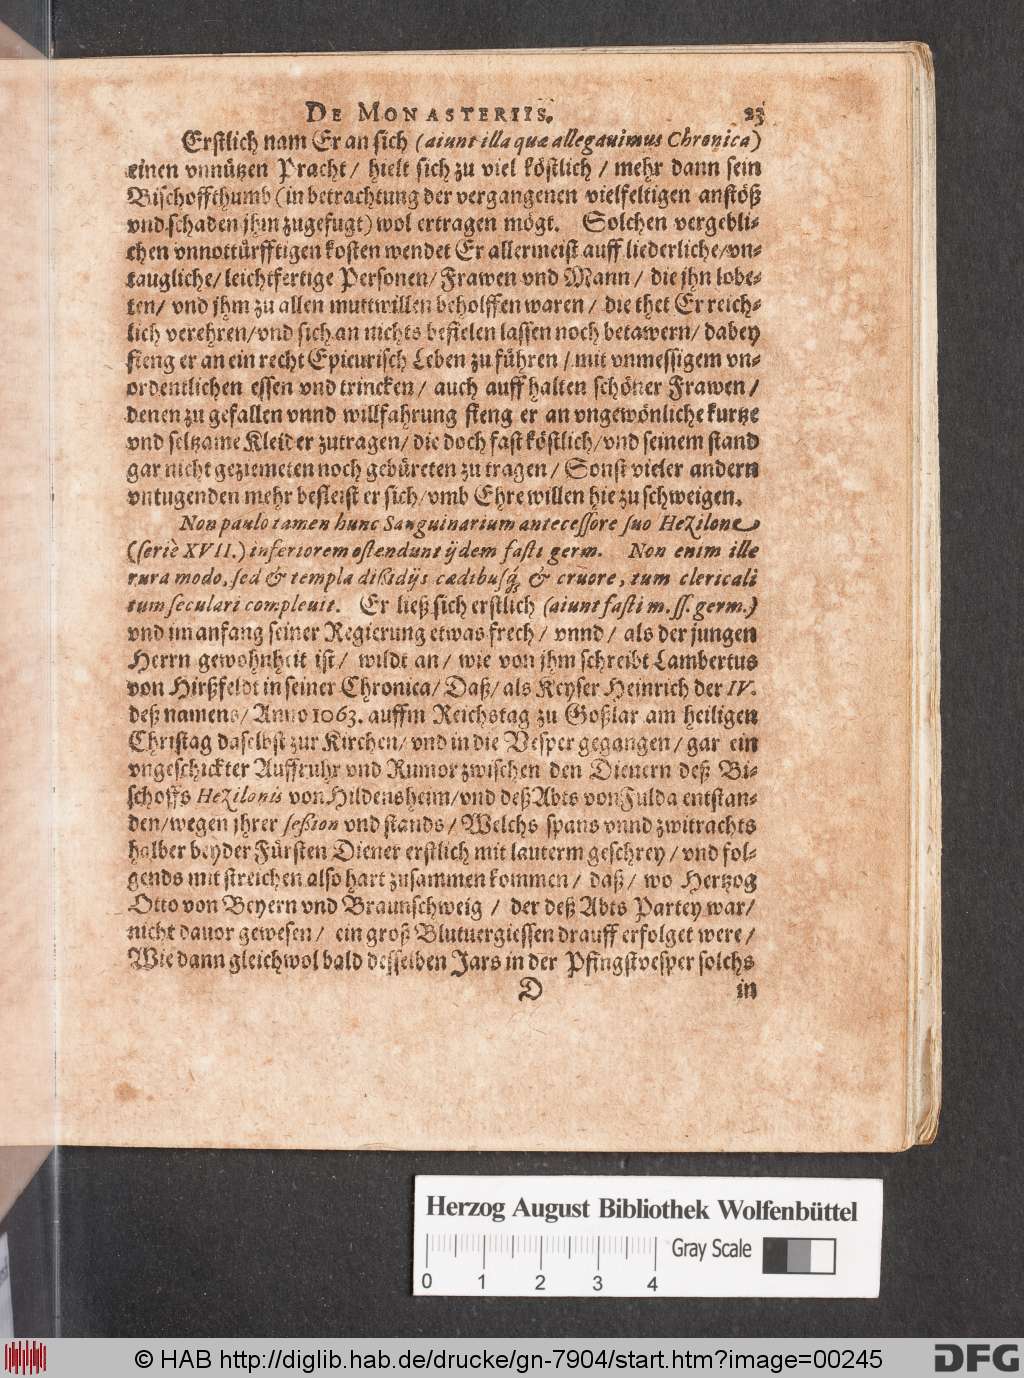 DE MONASTERIIS. 23
Erstlich nam Er an sich (aiunt illa quæ allegauimus Chronica)
einen vnnützen Pracht / hielt sich zu viel köstlich / mehr dann sein
Bischoffthumb (in betrachtung der vergangenen vielfeltigen anstöß
vnd schaden jhm zugefugt) wol ertragen mögt. Solchen vergebli-
chen vnnottürfftigen kosten wendet Er allermeist auff liederliche / vn-
taugliche / leichtfertige Personen / Frawen vnd Mann / die jhn lobe-
ten / vnd jhm zu allen muttwillen beholffen waren / die thet Er reich-
lich verehren / vnd sich an nichts befielen lassen noch betawern / dabey
fieng er an ein recht Epicurisch Leben zu führen / mit vnmessigem vn-
ordentlichen essen vnd trincken / auch auff halten schöner Frawen /
denen zu gefallen vnnd willfahrung fieng er an vngewönliche kurtze
vnd seltzame Kleider zutragen / die doch fast köstlich / vnd seinem stand
gar nicht geziemeten noch gebüreten zu tragen / Sonst vieler andern
vntugenden mehr befleist er sich / vmb Ehre willen hie zu schweigen.
Non paulo tamen hunc Sanguinarium antecessore suo Hezilone
(serie XVII.) inferiorem ostendunt ijdem fasti germ. Non enim ille
rura modo, sed & templa dißidijs cædibusq́; & cruore, tum clericali
tum seculari compleuit. Er ließ sich erstlich (aiunt fasti m. ss. germ.)
vnd im anfang seiner Regierung etwas frech / vnnd / als der jungen
Herrn gewohnheit ist / wildt an / wie von jhm schreibt Lambertus
von Hirßfeldt in seiner Chronica / Daß / als Keyser Heinrich der IV.
deß namens / Anno 1063. auffm Reichstag zu Goßlar am heiligen
Christag daselbst zur Kirchen / vnd in die Vesper gegangen / gar ein
vngeschickter Auffruhr vnd Rumor zwischen den Dienern deß Bi-
schoffs Hezilonis von Hildensheim / vnd deß Abts von Fulda entstan-
den / wegen jhrer seßion vnd stands / Welchs spans vnnd zwitrachts
halber beyder Fürsten Diener erstlich mit lauterm geschrey / vnd fol-
gends mit streichen also hart zusammen kommen / daß / wo Hertzog
Otto von Beyern vnd Braunschweig / der deß Abts Partey war /
nicht dauor gewesen / ein groß Blutuergiessen drauff erfolget were /
Wie dann gleichwol bald desselben Jars in der Pfingstvesper solchs
D in
Herzog August Bibliothek Wolfenbüttel
Gray Scale
0 1 2 3 4
© HAB http://diglib.hab.de/drucke/gn-7904/start.htm?image=00245
DFG